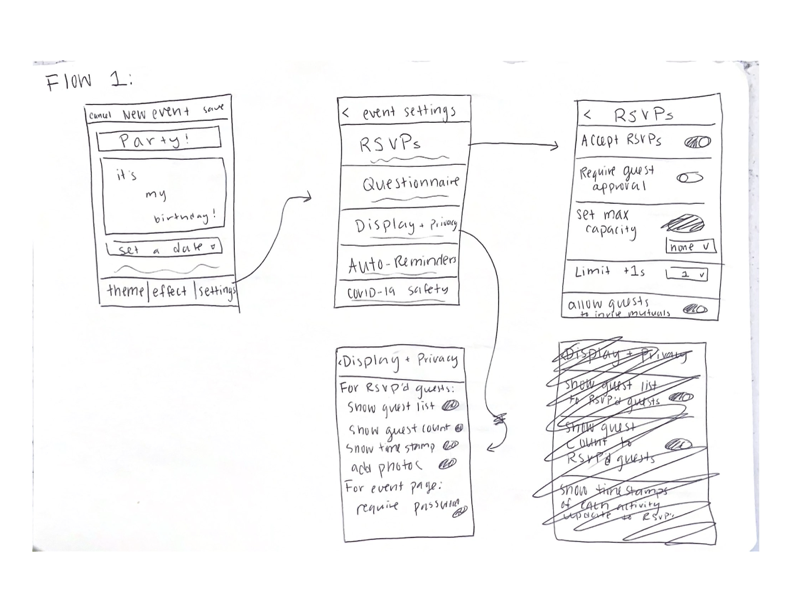 Flow 1:
Cancel New event save
Party!
it's
my
birthday!
set a date
theme | effect | settings
< event settings
RSVPs
Questionnaire
Display + Privacy
Auto-Reminder
COVID-19 safety
< RSVPs
Accept RSVPs
Require guest
approval
set max
capacity
none v
Limit +1s 1 v
allow guests
to invite mutuals
< Display + Privacy
For RSVP'd guests:
show guest list
show guest count
show timestamp
add photos
For event page:
require password
Display + Privacy
show guest list
to RSVP'd guests
show guest
count to
RSVP'd guests
show timestamps
of each activity
update to RSVP'd